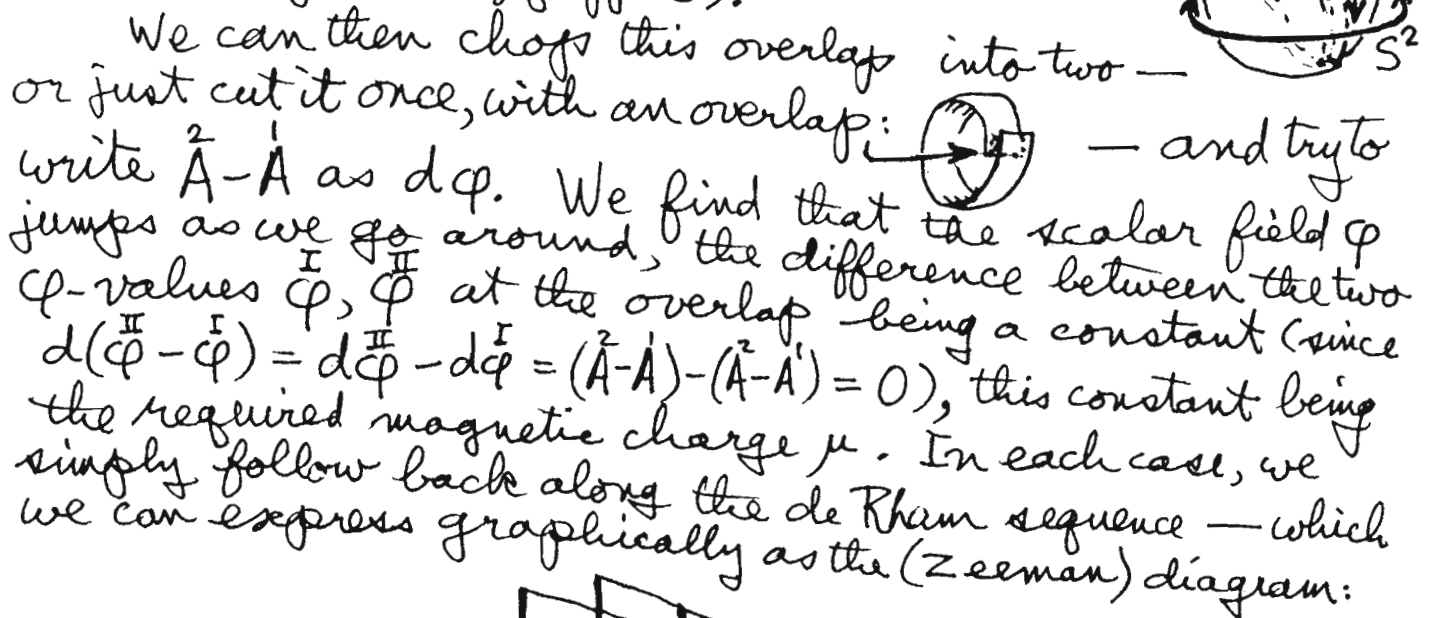 We can then chop this overlap into two —
S²
or just cut it once, with an overlap: — and try to
write Å² - Å¹ as dφ. We find that the scalar field φ
jumps as we go around, the difference between the two
φ-values φ^I, φ^II at the overlap being a constant (since
d(φ^II - φ^I) = dφ^II - dφ^I = (A² - A¹) - (A² - A¹) = 0), this constant being
the required magnetic charge μ. In each case, we
simply follow back along the de Rham sequence — which
we can express graphically as the (Zeeman) diagram: